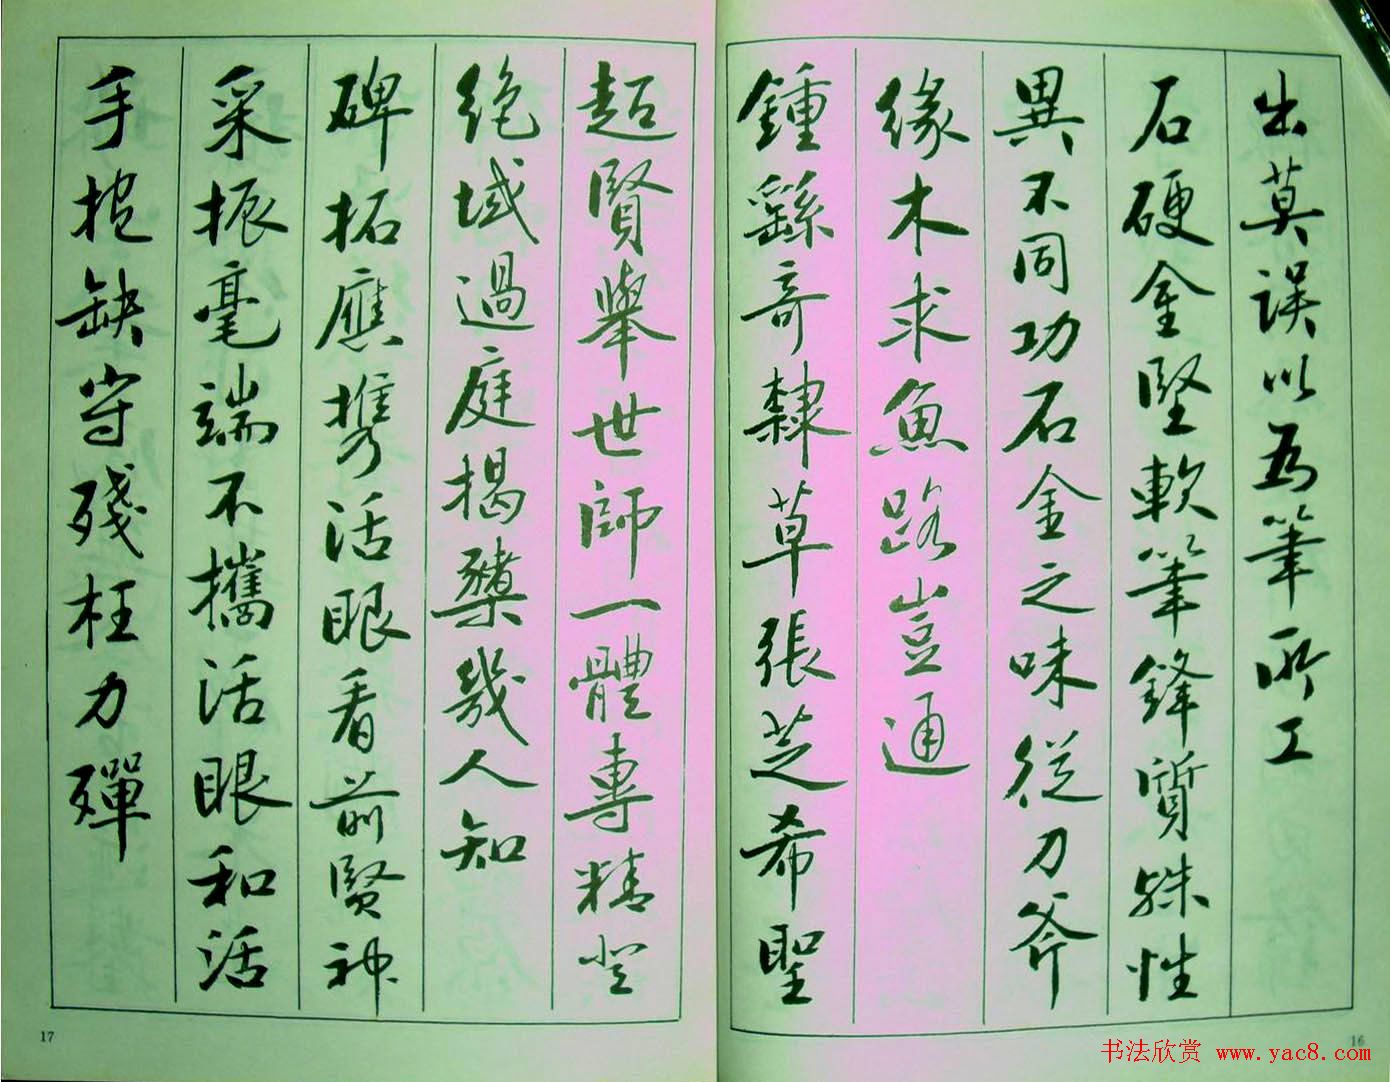 出莫誤以为筆所工
石硬金堅軟筆鋒質殊性
異不同功石金之味從刀斧
緣木求魚路豈通
鍾繇奇隸草張芝希聖
超賢舉世師一體專精登
绝域過庭揭櫫幾人知
碑拓應携活眼看前賢神
采振毫端不攜活眼和活
手抱缺守殘枉力殫
17
16
书法欣赏 www.yac8.com